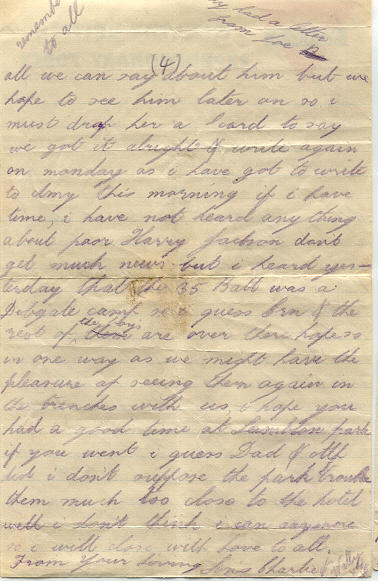 remember
to all
had a letter
from Joe
(4)
all we can say about him but we
hope to see him later on so i
must drop her a card to say
we got it alright i write again
on monday as i have got to write
to Amy this morning if i have
time, i have not heard anything
about poor Harry Jackson dont
get much news but i heard yes-
terday that the 35 Batt was a
Dibgate camp so i guess Ern & the
rest of the boys are over there hope so
in one way as we might have the
pleasure of seeing them again in
the trenches with us, i hope you
had a good time at park
if you went i guess Dad & Alf
did i dont suppose the park trouble
them much too close to the hotel
well i dont think i can say more
so i will close with love to all.
From Your Loving Sons Charlie & Wally